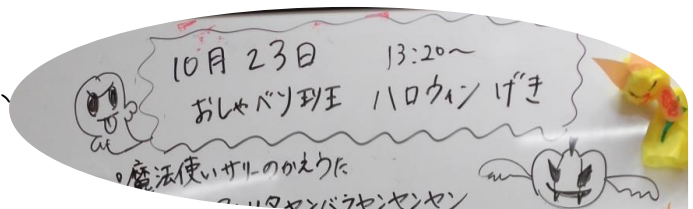 10月23日 13:20〜
おしゃべり班 ハロウィン げき
魔法使いサリーのかえうた
ヤンバラヤンヤンヤン